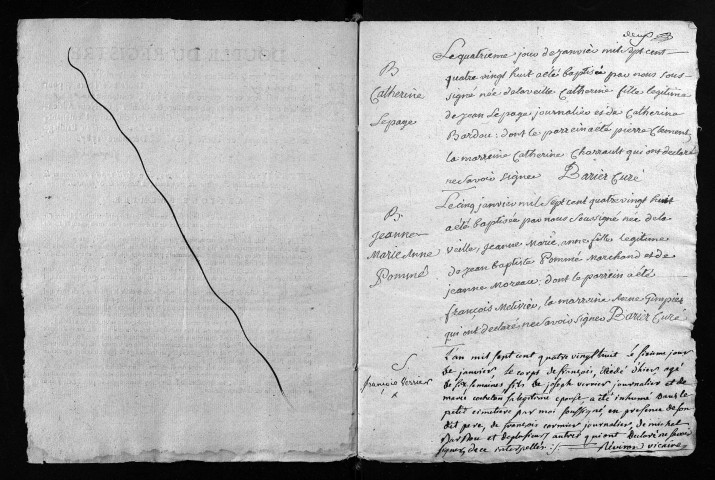 deux
Le quatrieme jour de janvier mil sept cent
quatre vingt huit a eté baptisée par nous sous-
signé née de la veille Catherine fille legitime
de jean Lepage journalier et de Catherine
Bardou : dont le parrein a été pierre Clement,
la marreine Catherine Charrault qui ont declaré
ne savoir signer Barier Curé
B
Catherine
Lepage
Le cinq janvier mil Sept cent quatre vingt huit
a été baptisée par nous Soussigné née de la
veille, jeanne Marie, anne fille Legitime
de jean baptiste Pommé Marchand et de
jeanne Moreau : dont le parrein a eté
françois Metivier, la marreine Anne
qui ont declaré ne Savoir signer Barier Curé
B
Jeanne
Marie Anne
Pommé
L'an mil sept cent quatre vingt huit le jour
de janvier le corps de françois, décédé d'hier, agé
de six semaines fils de joseph verrier journalier et de
marie sa legitime epouse, a été inhumé dans le
petit cimetiere par moi soussigné, en presence de son
dit pere, de françois cormier journalier de michel
Bardou et de plusieurs autres qui ont declaré ne savoir
signer, de ce interpellés /. vicaire
S
françois verrier
x
DOUBLE DU REGISTRE